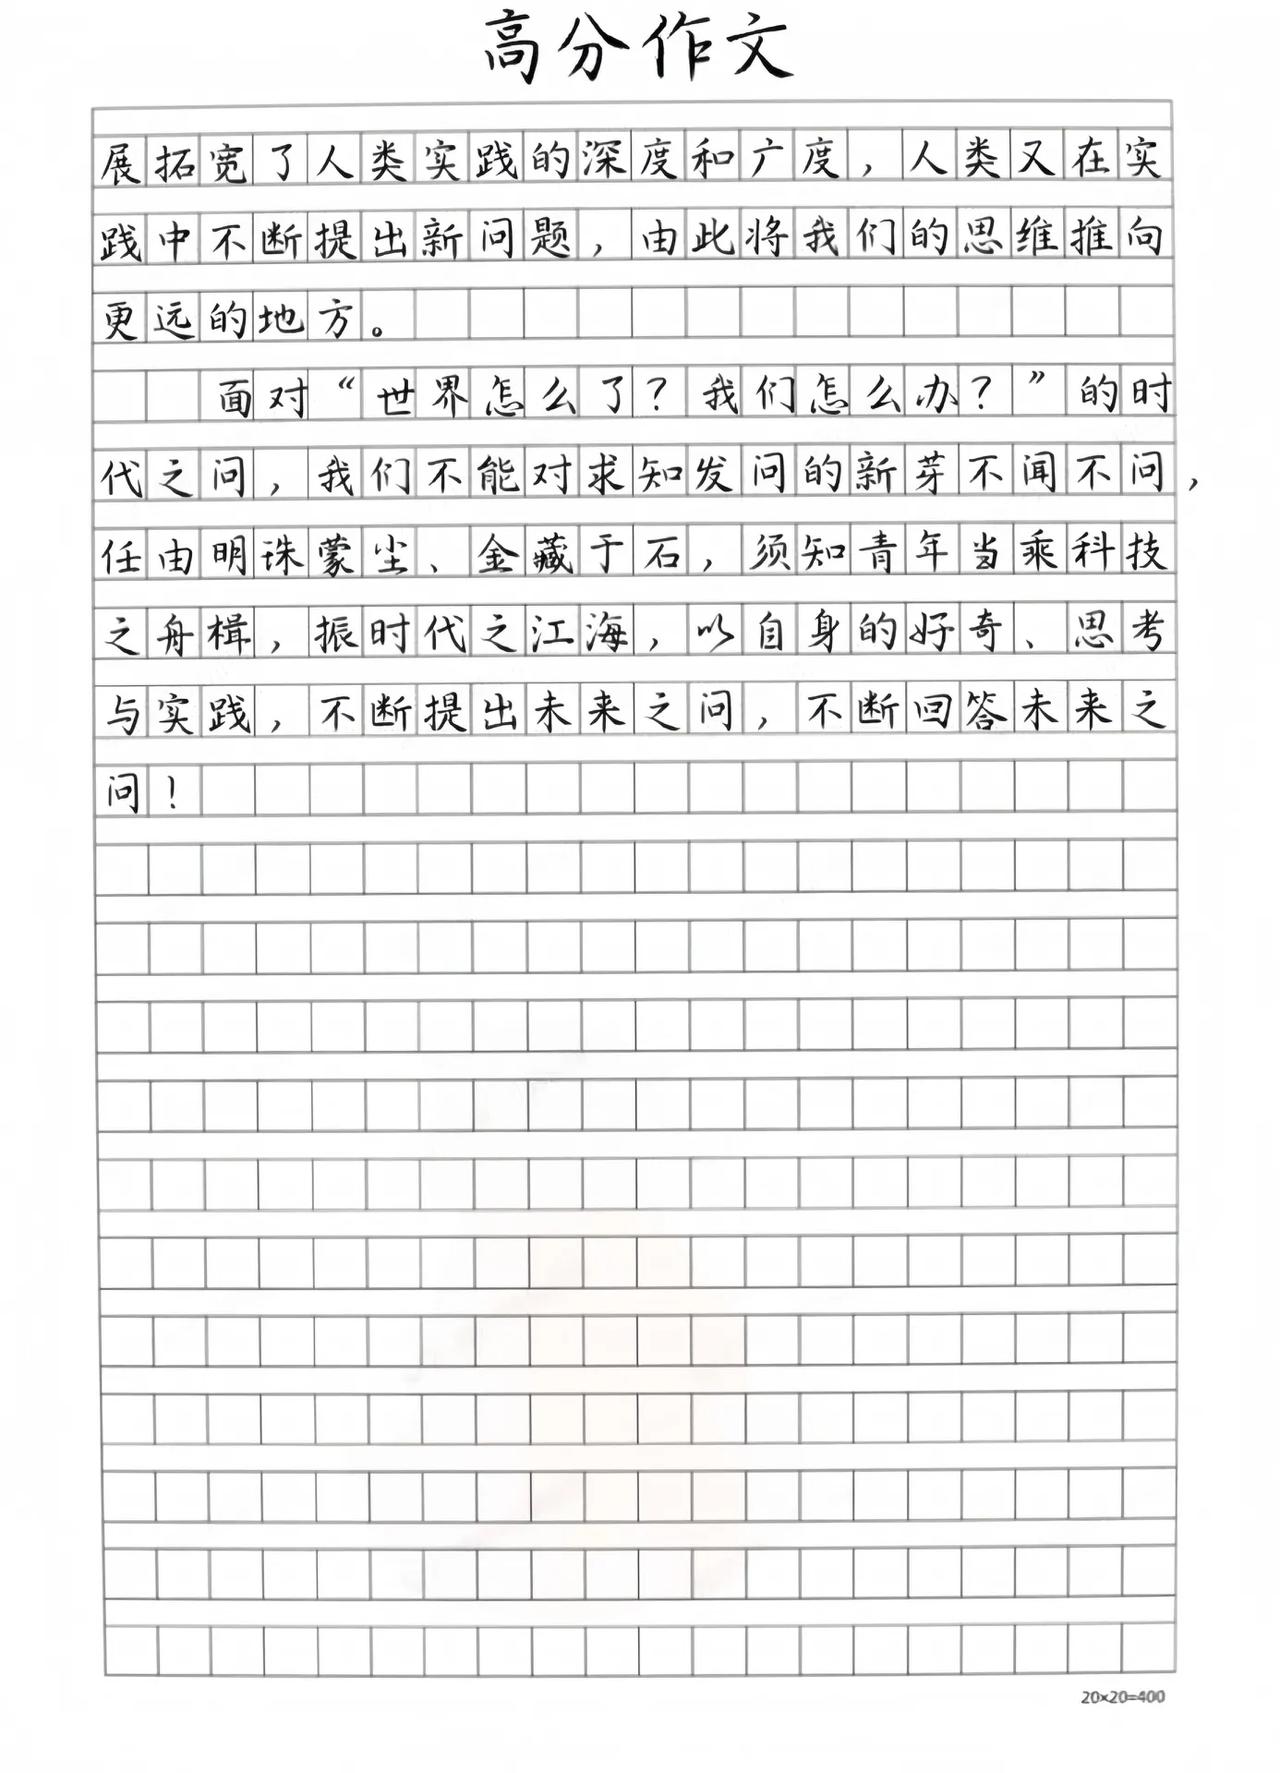 高分作文
展拓宽了人类实践的深度和广度，人类又在实
践中不断提出新问题，由此将我们的思维推向
更远的地方。
面对“世界怎么了？我们怎么办？”的时
代之问，我们不能对求知发问的新芽不闻不问，
任由明珠蒙尘、金藏于石，须知青年当乘科技
之舟楫，振时代之江海，以自身的好奇、思考
与实践，不断提出未来之问，不断回答未来之
问！
20×20=400